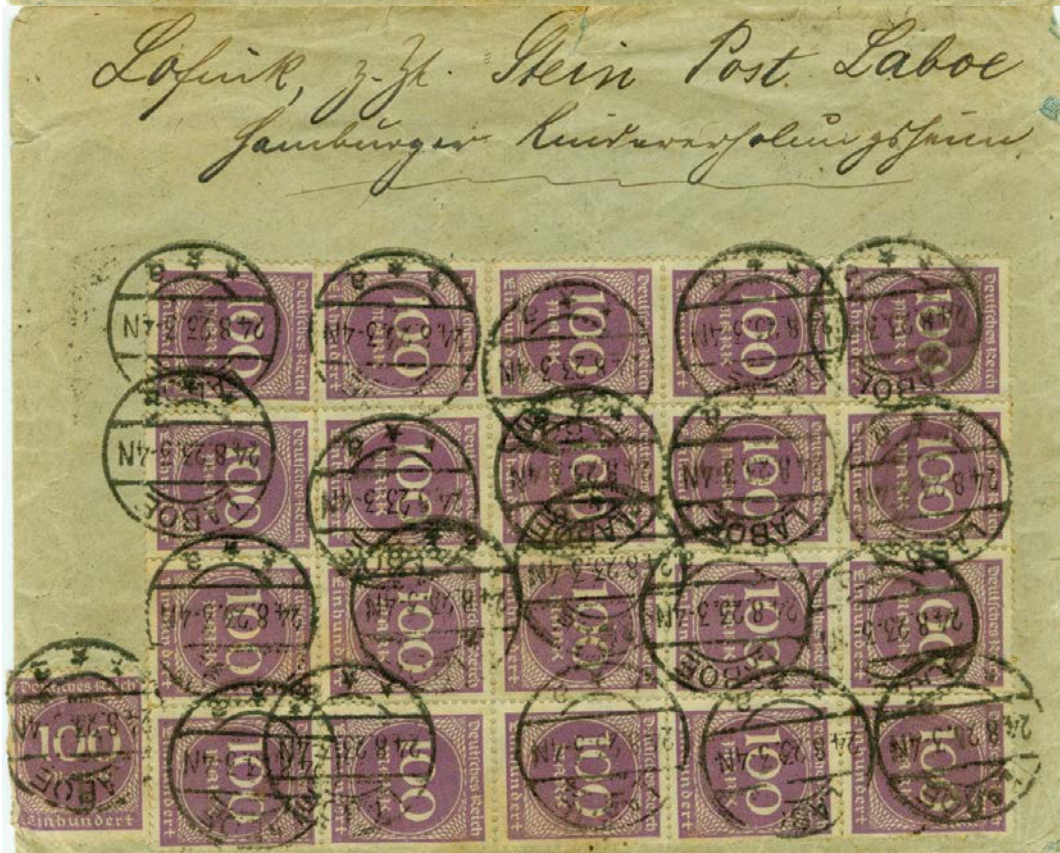 Lofink, z. Zt. Stein Post Laboe
Hamburger Kindererholungsheim
Deutsches Reich
100
Mark
Einhundert
LABOE
24.8.23.3-4N
a